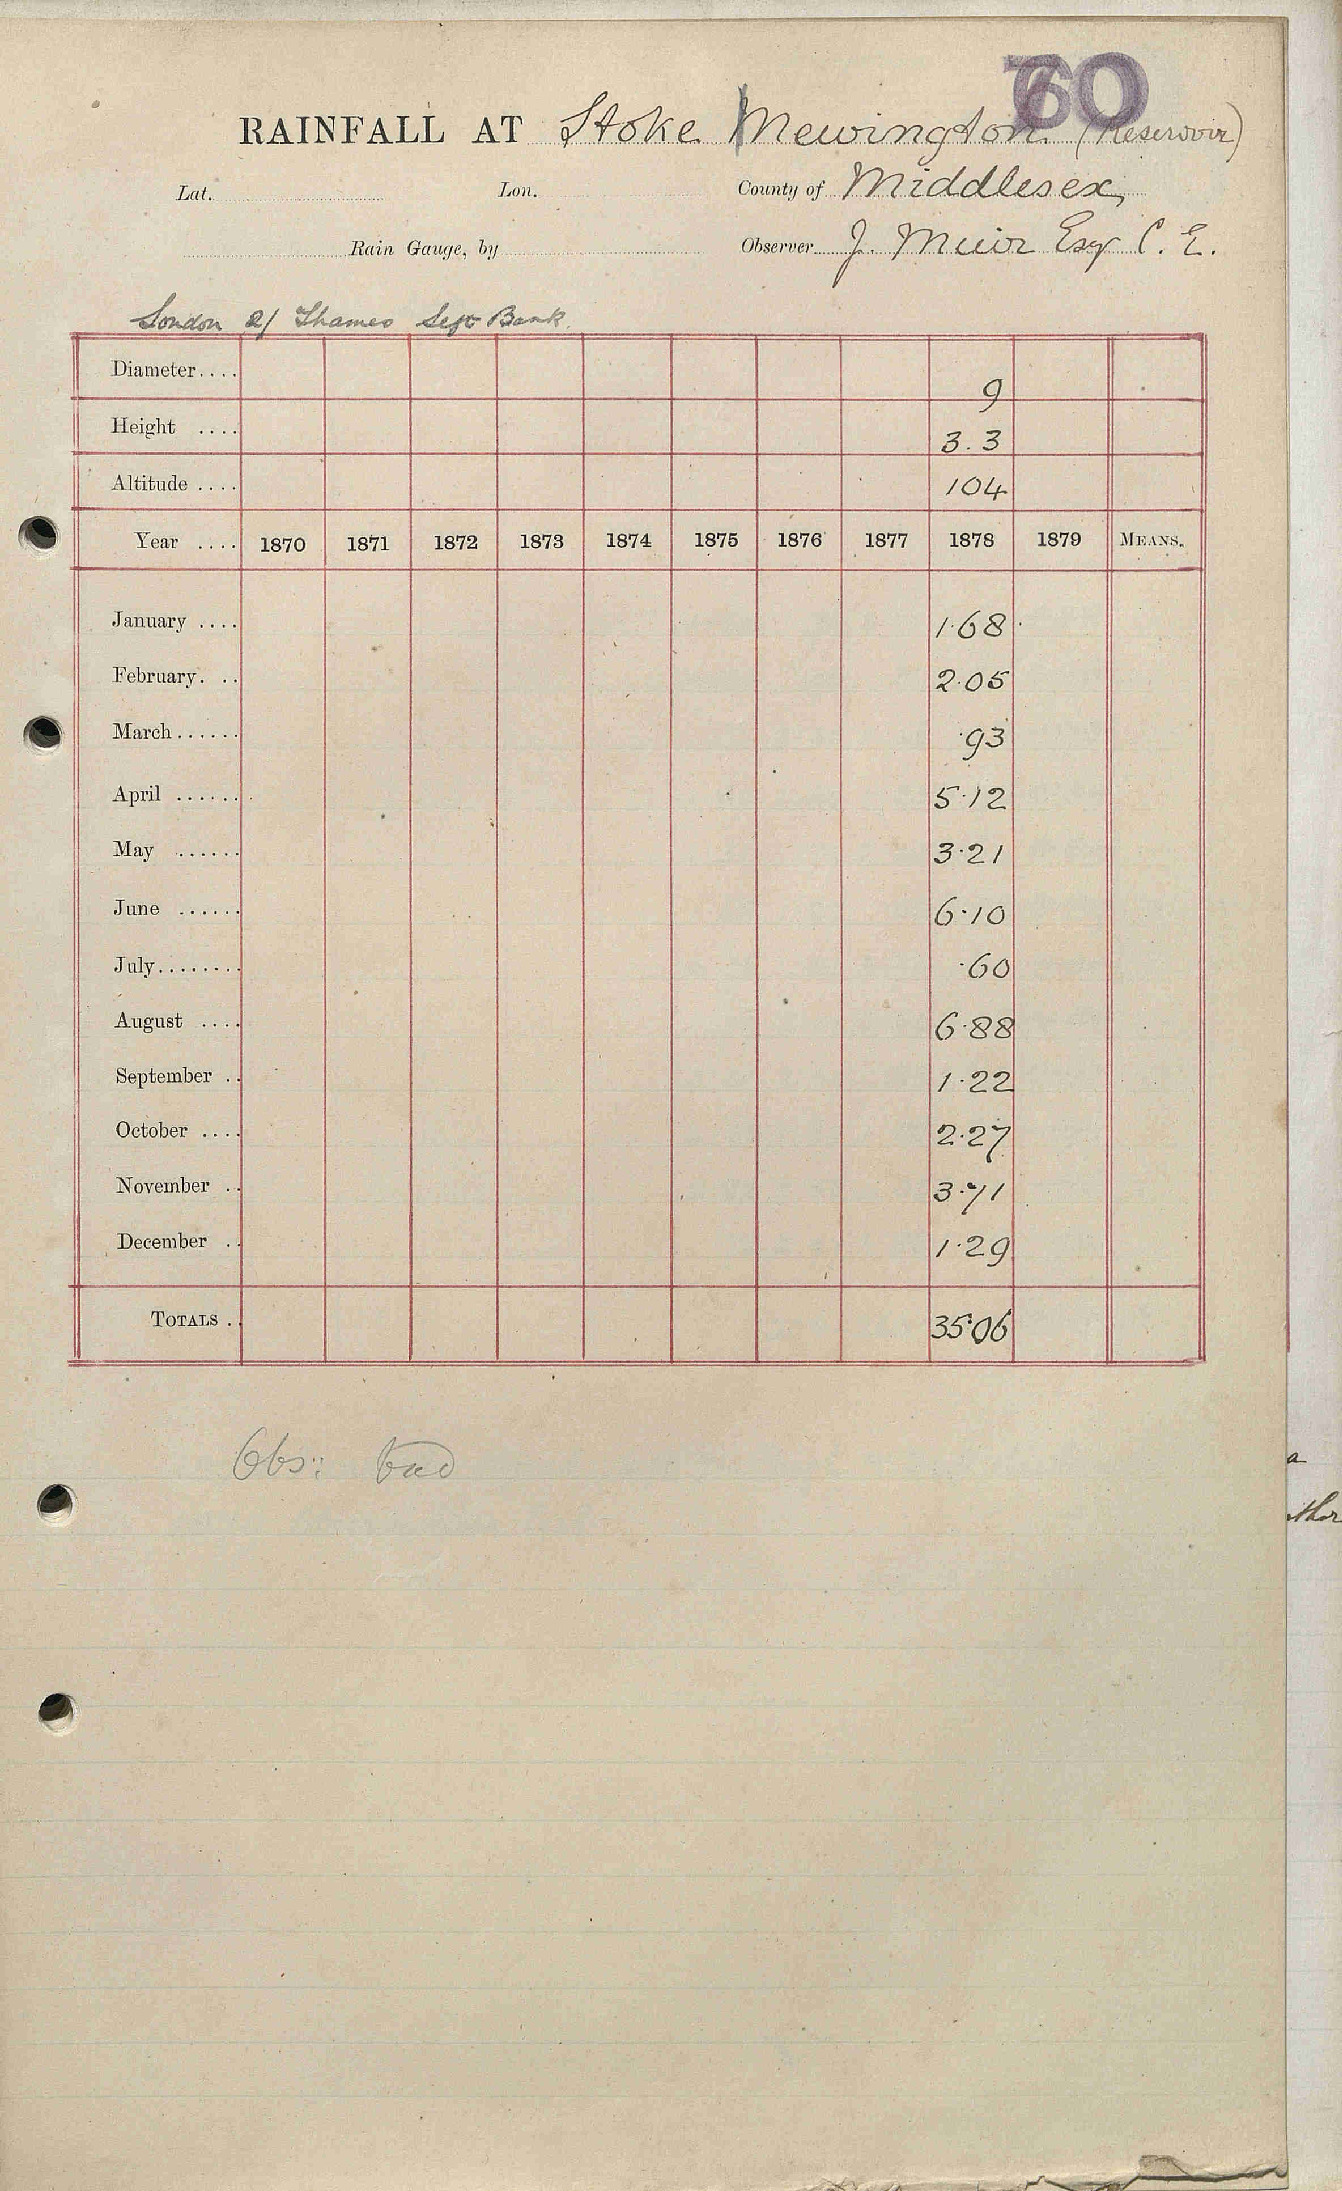 60
RAINFALL AT Stoke Newington (Reservoir)
Lat. Lon. County of Middlesex
Rain Gauge, by Observer J. Muir Esqr C. E.
London Thames Left Bank
Diameter.... 9
Height .... 3.3
Altitude .... 104
Year .... 1870 1871 1872 1873 1874 1875 1876 1877 1878 1879 MEANS.
January .... 1.68
February. .. 2.05
March...... .93
April ...... 5.12
May ...... 3.21
June ...... 6.10
July........ .60
August .... 6.88
September .. 1.22
October .... 2.27
November .. 3.71
December .. 1.29
TOTALS .. 35.06
Obs: bad
a